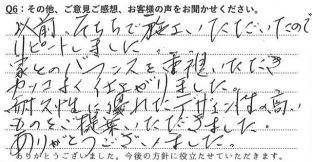 Q6：その他、ご意見ご感想、お客様の声をお聞かせください。
以前、そちらで施工いただいたので
リピートしました。
家とのバランスを重視いただき
カッコよく仕上がりました。
耐久性に優れたデザイン性の高い
ものをご提案いただきました。
ありがとうございました。
ありがとうございました。今後の方針に役立たせていただきます。